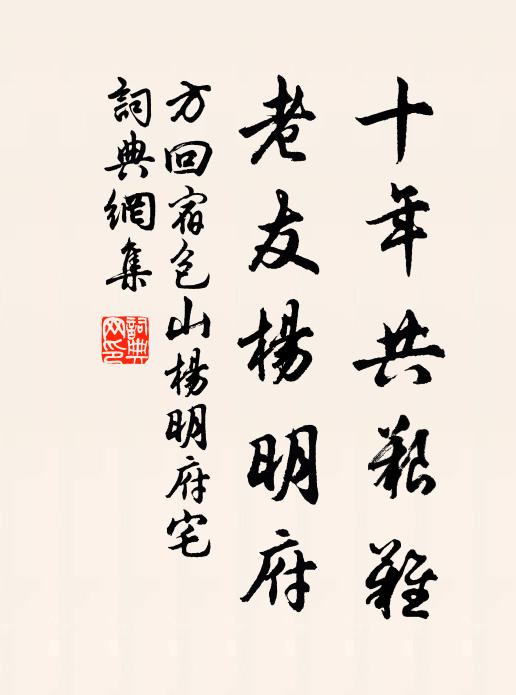 十年共艱難
老友楊明府
方回宿包山楊明府宅
詞典網集
詞典网印